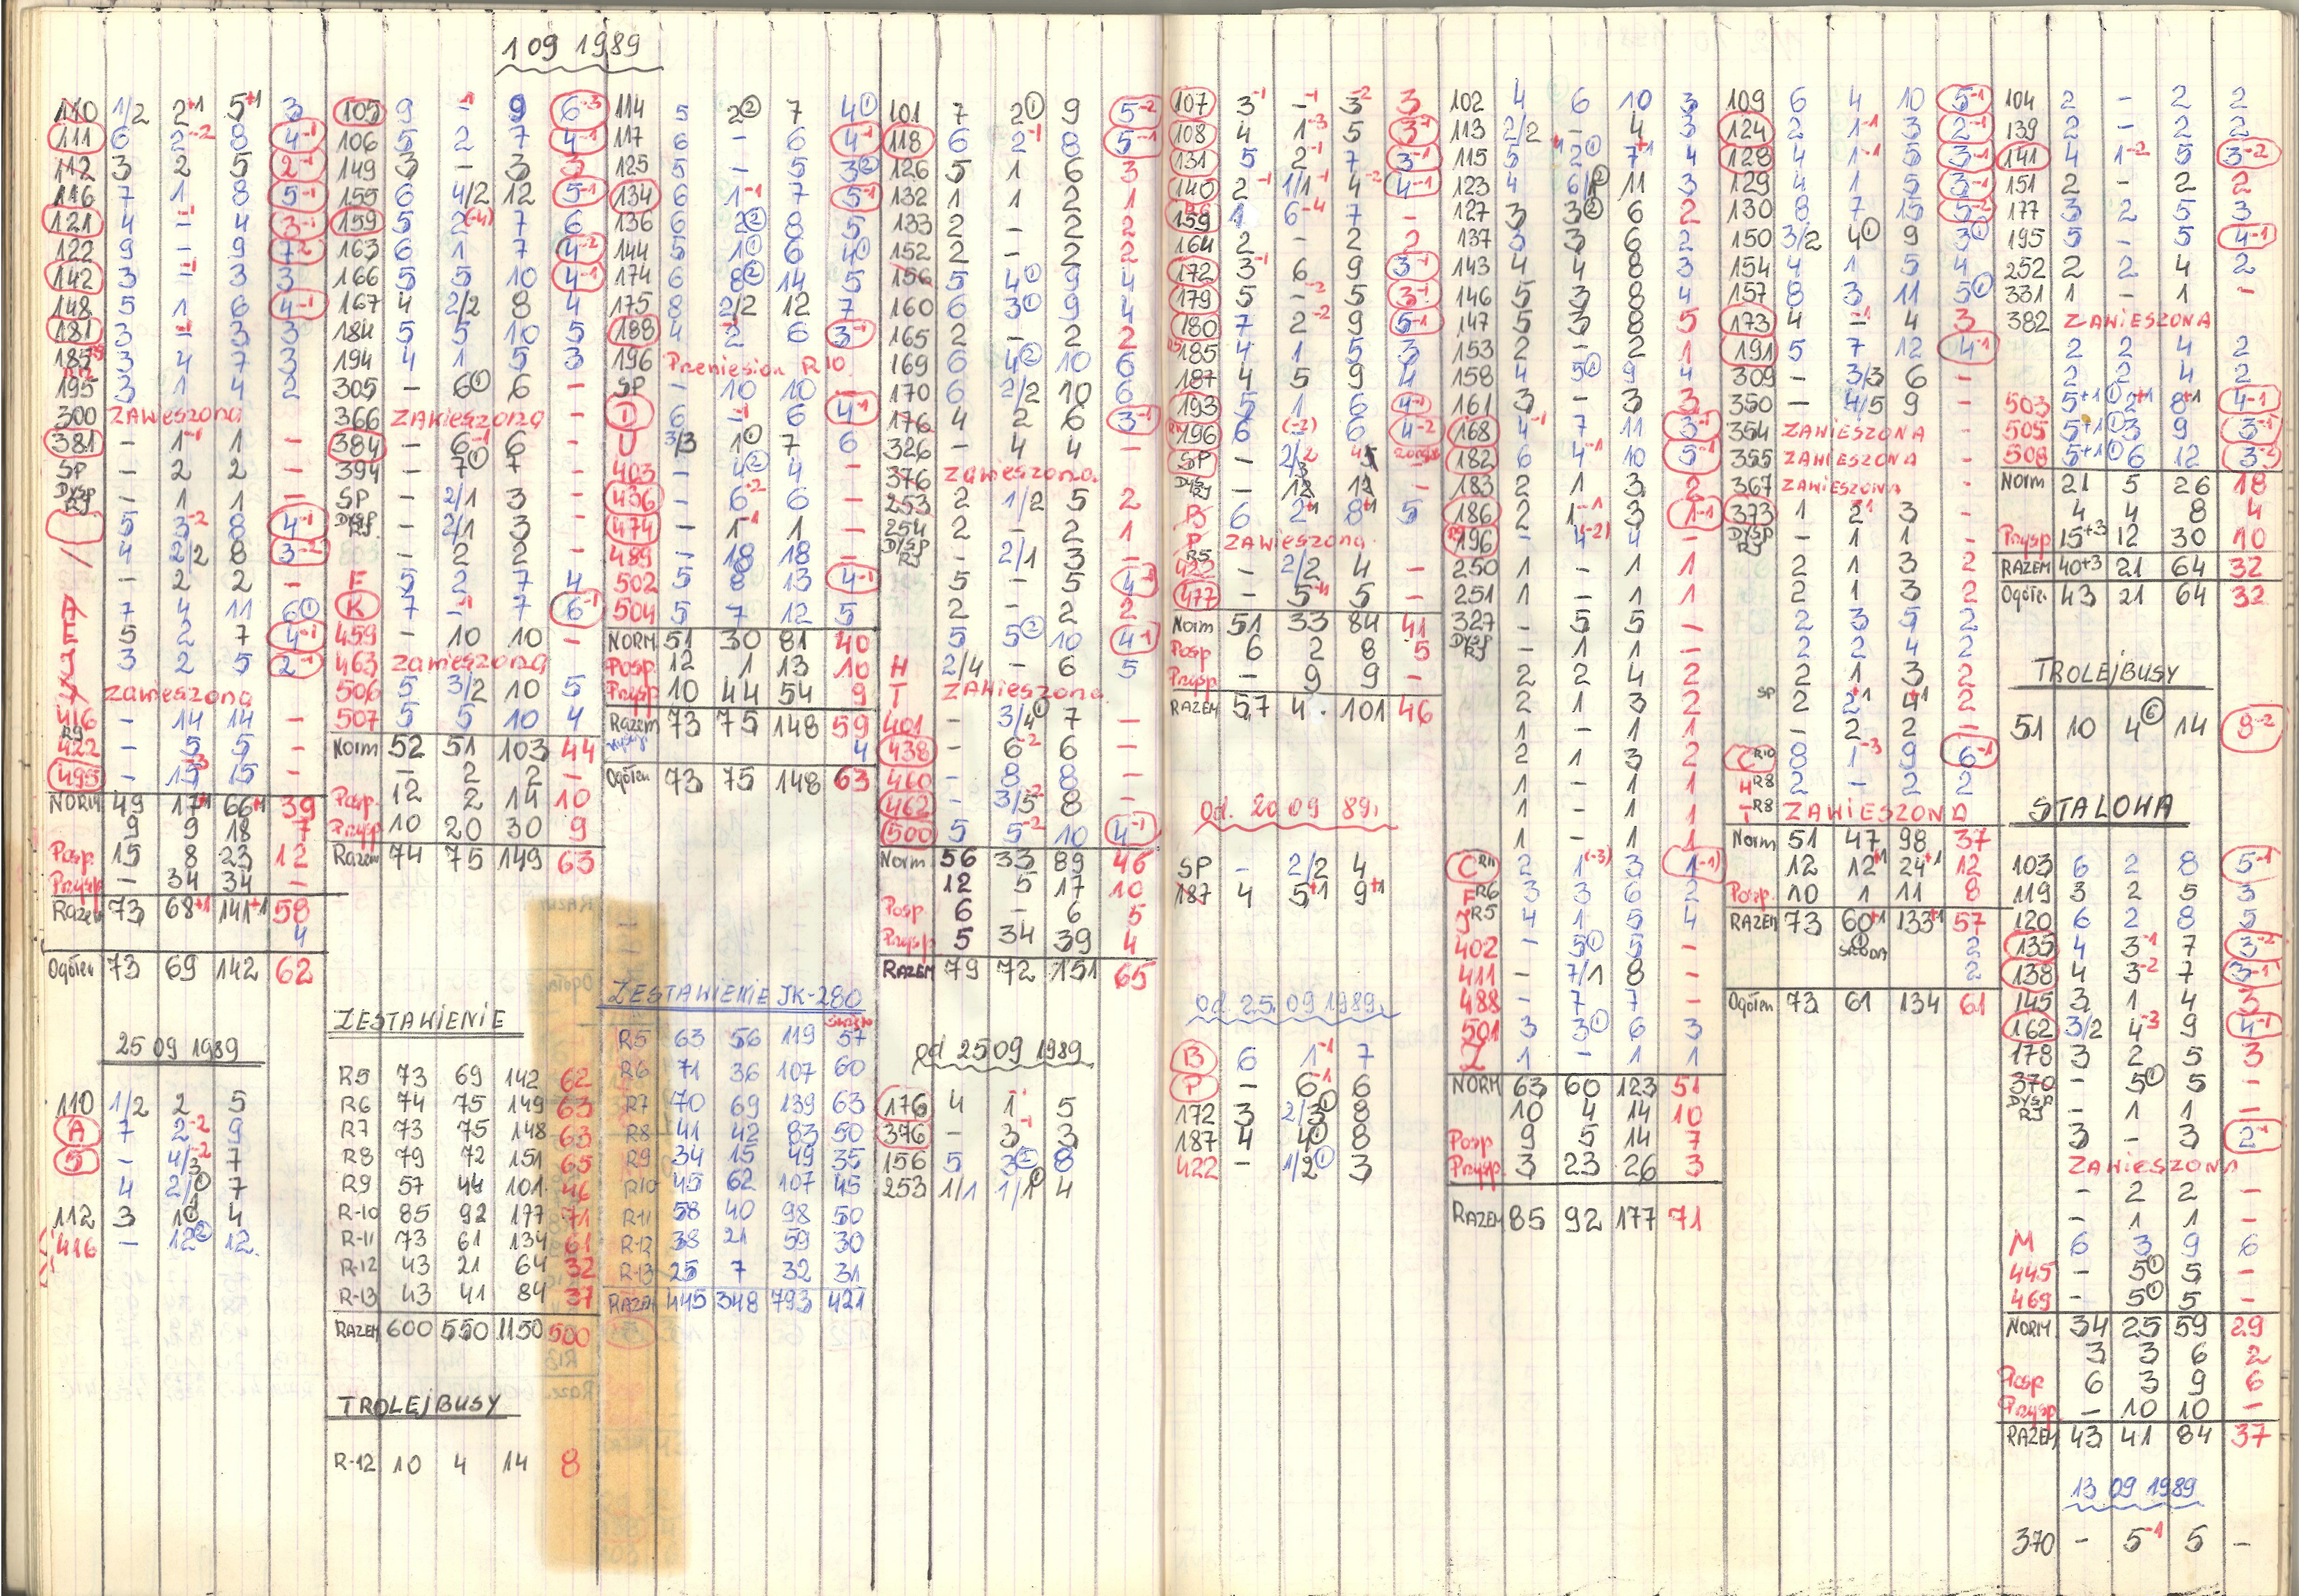 1 09 1989
110 1/2 2+1 5+1 3
111 6 2-2 8 4-1
112 3 2 5 2-1
116 7 1 8 5-1
121 4 --1 4 3-1
122 9 - 9 7-2
142 3 --1 3 3
148 5 1 6 4-1
181 3 --1 3 3
185 3 4 7 3
195 3 1 4 2
300 zawieszona
381 - 1-1 1 -
SP - 2 2 -
DYSP R9 - 1 1 -
5 3-2 8 4-1
4 2/2 8 3-2
- 2 2 -
A 7 4 11 6①
E 5 2 7 4-1
J 3 2 5 2-1
zawieszona
416 - 14 14 -
R9 422 - 5 5 -
495 - 15-3 15 -
NORM 49 17+1 66+1 39
9 9 18 7
Posp. 15 8 23 12
Przysp - 34 34 -
Razem 73 68+1 141+1 58
4
Ogółem 73 69 142 62
25 09 1989
110 1/2 2 5
A 7 2-2 9
5 - 4/3-2 7
4 2/1① 7
112 3 1① 4
416 - 12② 12
105 9 --1 9 6-3
106 5 2 7 4-1
149 3 - 3 3
155 6 4/2 12 5-1
159 5 2(-4) 7 6
163 6 1 7 4-2
166 5 5 10 4-1
167 4 2/2 8 4
184 5 5 10 5
194 4 1 5 3
305 - 6① 6 -
366 zawieszona -
384 - 6-1 6 -
394 - 7① 7 -
SP - 2/1 3 -
DYSP R9 - 2/1 3 -
- 2 2 -
F 5 2 7 4
K 7 --1 7 6-1
459 - 10 10 -
463 zawieszona
506 5 3/2 10 5
507 5 5 10 4
Norm 52 51 103 44
- 2 2 -
Posp. 12 2 14 10
Przysp 10 20 30 9
Razem 74 75 149 63
ZESTAWIENIE
R5 73 69 142 62
R6 74 75 149 63
R7 73 75 148 63
R8 79 72 151 65
R9 57 44 101 46
R-10 85 92 177 71
R-11 73 61 134 61
R-12 43 21 64 32
R-13 43 41 84 37
RAZEM 600 550 1150 500
TROLEJBUSY
R-12 10 4 14 8
114 5 2② 7 4①
117 6 - 6 4-1
125 5 - 5 3②
134 6 1-1 7 5-1
136 6 2② 8 5
144 5 1① 6 4①
174 6 8② 14 5
175 8 2/2 12 7
188 4 2-1 6 3-1
196 Przeniesion R10
SP - 10 10 -
6 --1 6 4-1
U 3/3 1① 7 6
403 - 4② 4 -
436 - 6-2 6 -
474 - 1-1 1 -
489 - 18 18 -
502 5 8 13 4-1
504 5 7 12 5
NORM 51 30 81 40
Posp. 12 1 13 10
Przysp 10 44 54 9
Razem 73 75 148 59
4
Ogółem 73 75 148 63
ZESTAWIENIE JK-280
R5 63 56 119 57
R6 71 36 107 60
R7 70 69 139 63
R8 41 42 83 50
R9 34 15 49 35
R10 45 62 107 45
R11 58 40 98 50
R-12 38 21 59 30
R-13 25 7 32 31
RAZEM 445 348 793 421
101 7 2① 9 5-2
118 6 2-1 8 5-1
126 5 1 6 3
132 1 1 2 1
133 2 - 2 2
152 2 - 2 2
156 5 4① 9 4
160 6 3① 9 4
165 2 - 2 2
169 6 4② 10 6
170 6 2/2 10 6
176 4 2 6 3-1
326 - 4 4 -
376 zawieszona.
253 2 1/2 5 2
254 2 - 2 1
DYSP R9 - 2/1 3 -
5 - 5 4-1
2 - 2 2
5 5② 10 4-1
H 2/4 - 6 5
T ZAWIESZONA
401 - 3/4① 7 -
438 - 6-2 6 -
460 - 8 8 -
462 - 3/5-2 8 -
500 5 5-2 10 4-1
Norm 56 33 89 46
12 5 17 10
Posp 6 - 6 5
Przysp 5 34 39 4
RAZEM 79 72 151 65
od 25 09 1989
176 4 1-1 5
376 - 3-1 3
156 5 3② 8
253 1/1 1/1① 4
107 3-1 --1 3-2 3
108 4 1-3 5 3-1
131 5 2-1 7 3-1
140 2-1 1/1-1 4-2 4-1
159 1 6-4 7 -
164 2 - 2 2
172 3-1 6 9 3-1
179 5 --2 5 3-1
180 7 2-2 9 5-1
185 4 1 5 3
187 4 5 9 4
193 5 1 6 4-1
196 6 (-2) 6 4-2
SP - 2/2
DYSP R9 - 12 12 -
B 6 2+1 8+1 5
P zawieszona.
R5 422 - 2/2 4 -
477 - 5-1 5 -
Norm 51 33 84 41
Posp 6 2 8 5
Przysp - 9 9 -
RAZEM 57 4. 101 46
Od. 20 09 89.
SP - 2/2 4
187 4 5+1 9+1
od. 25. 09 1989.
B 6 1-1 7
P - 6-1 6
172 3 2/3① 8
187 4 4① 8
422 - 1/2① 3
102 4 6 10 3
113 2/2 - 4 3
115 5+1 2① 7+1 4
123 4 6/1② 11 3
127 3 3② 6 2
137 3 3 6 2
143 4 4 8 3
146 5 3 8 4
147 5 3 8 5
153 2 - 2 1
158 4 5① 9 4
161 3 - 3 3
168 4-1 7 11 3-1
182 6 4-1 10 5-1
183 2 1 3 2
186 2 1-1 3 1-1
196 - 4(-2) 4 -
250 1 - 1 1
251 1 - 1 1
327 - 5 5 -
DYSP R9 - 1 1 -
2 2 4 2
2 1 3 2
1 - 1 1
2 1 3 2
1 - 1 1
1 - 1 1
1 - 1 1
C R11 2 1(-3) 3 1-1
F R6 3 3 6 2
J R5 4 1 5 4
402 - 5① 5 -
411 - 7/1 8 -
488 - 7 7 -
501 3 3① 6 3
Z 1 - 1 1
NORM 63 60 123 51
10 4 14 10
Posp 9 5 14 7
Przysp 3 23 26 3
RAZEM 85 92 177 71
109 6 4 10 5-1
124 2 1-1 3 2-1
128 4 1-1 5 3-1
129 4 1 5 3-1
130 8 7 15 5-2
150 3/2 4① 9 3①
154 4 1 5 4
157 8 3 11 5①
173 4 --1 4 3
191 5 7 12 4-1
309 - 3/3 6 -
350 - 4/5 9 -
354 ZAWIESZONA -
355 ZAWIESZONA -
367 ZAWIESZONA -
373 1 2-1 3 -
DYSP R9 - 1 1 -
2 1 3 2
2 1 3 2
2 3 5 2
2 2 4 2
2 1 3 2
SP 2 2+1 4+1 2
- 2 2 -
C R10 8 1-3 9 6-1
H R8 2 - 2 2
T R8 ZAWIESZONA
Norm 51 47 98 37
12 12+1 24+1 12
Posp. 10 1 11 8
RAZEM 73 60+1 133+1 57
ŚRODA 2
2
Ogółem 73 61 134 61
104 2 - 2 2
139 2 - 2 2
141 4 1-2 5 3-2
151 2 - 2 2
177 3 2 5 3
195 5 - 5 4-1
252 2 2 4 2
331 1 - 1 -
382 ZAWIESZONA
2 2 4 2
2 2 4 2
503 5+1① 2+1 8+1 4-1
505 5+1① 3 9 3-1
508 5+1① 6 12 3-2
Norm 21 5 26 18
4 4 8 4
Przysp 15+3 12 30 10
RAZEM 40+3 21 64 32
Ogółem 43 21 64 32
TROLEJBUSY
51 10 4⑥ 14 8-2
STALOWA
103 6 2 8 5-1
119 3 2 5 3
120 6 2 8 5
135 4 3-1 7 3-2
138 4 3-2 7 3-1
145 3 1 4 3
162 3/2 4-3 9 4-1
178 3 2 5 3
370 - 5① 5 -
DYSP R9 - 1 1 -
3 - 3 2-1
ZAWIESZONA
- 2 2 -
- 1 1 -
M 6 3 9 6
445 - 5① 5 -
469 - 5① 5 -
NORM. 34 25 59 29
3 3 6 2
Posp 6 3 9 6
Przysp - 10 10 -
RAZEM 43 41 84 37
13 09 1989
370 - 5-1 5 -